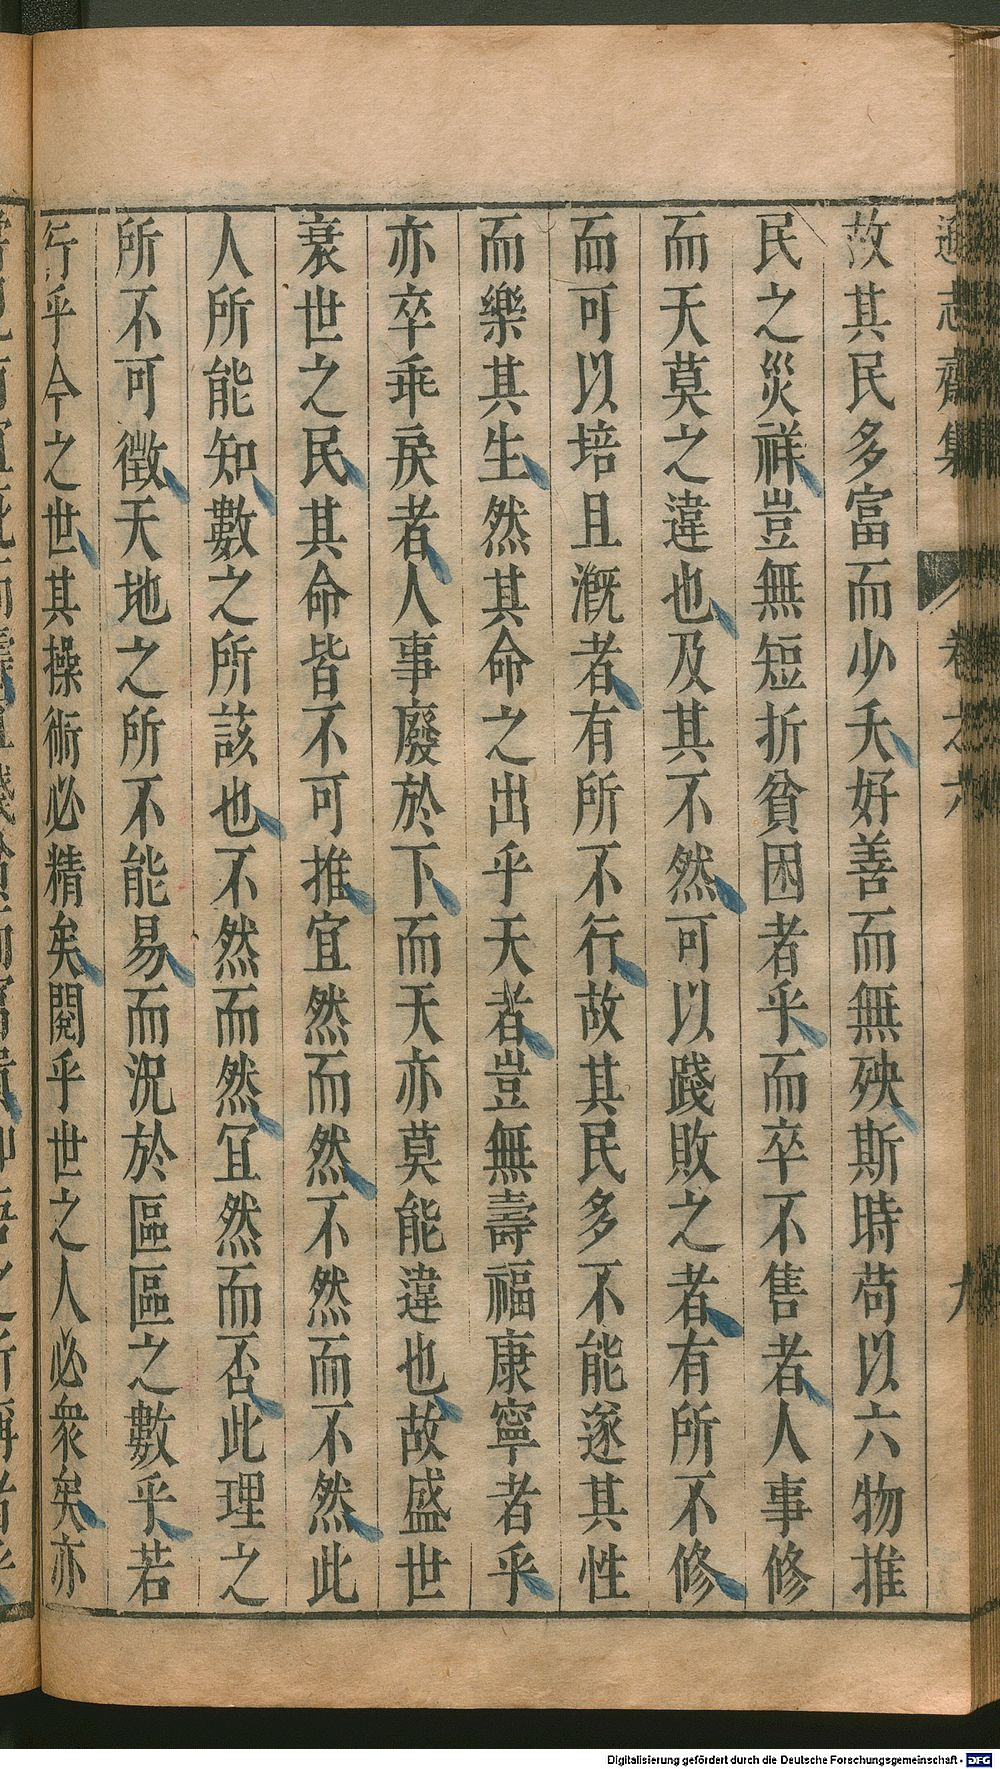 遜志齋集 卷之六 九
故其民多富而少夭好善而無殃斯時苟以六物推
民之災祥豈無短折貧困者乎而卒不售者人事修
而天莫之違也及其不然可以踐敗之者有所不修
而可以培且溉者有所不行故其民多不能遂其性
而樂其生然其命之出乎天者豈無壽福康寧者乎
亦卒乖戾者人事廢於下而天亦莫能違也故盛世
衰世之民其命皆不可推宜然而然不然而不然此
人所能知數之所該也不然而然宜然而否此理之
所不可徵天地之所不能易而況於區區之數乎若
行乎今之世其操術必精矣閱乎世之人必衆矣亦
Digitalisierung gefördert durch die Deutsche Forschungsgemeinschaft - DFG